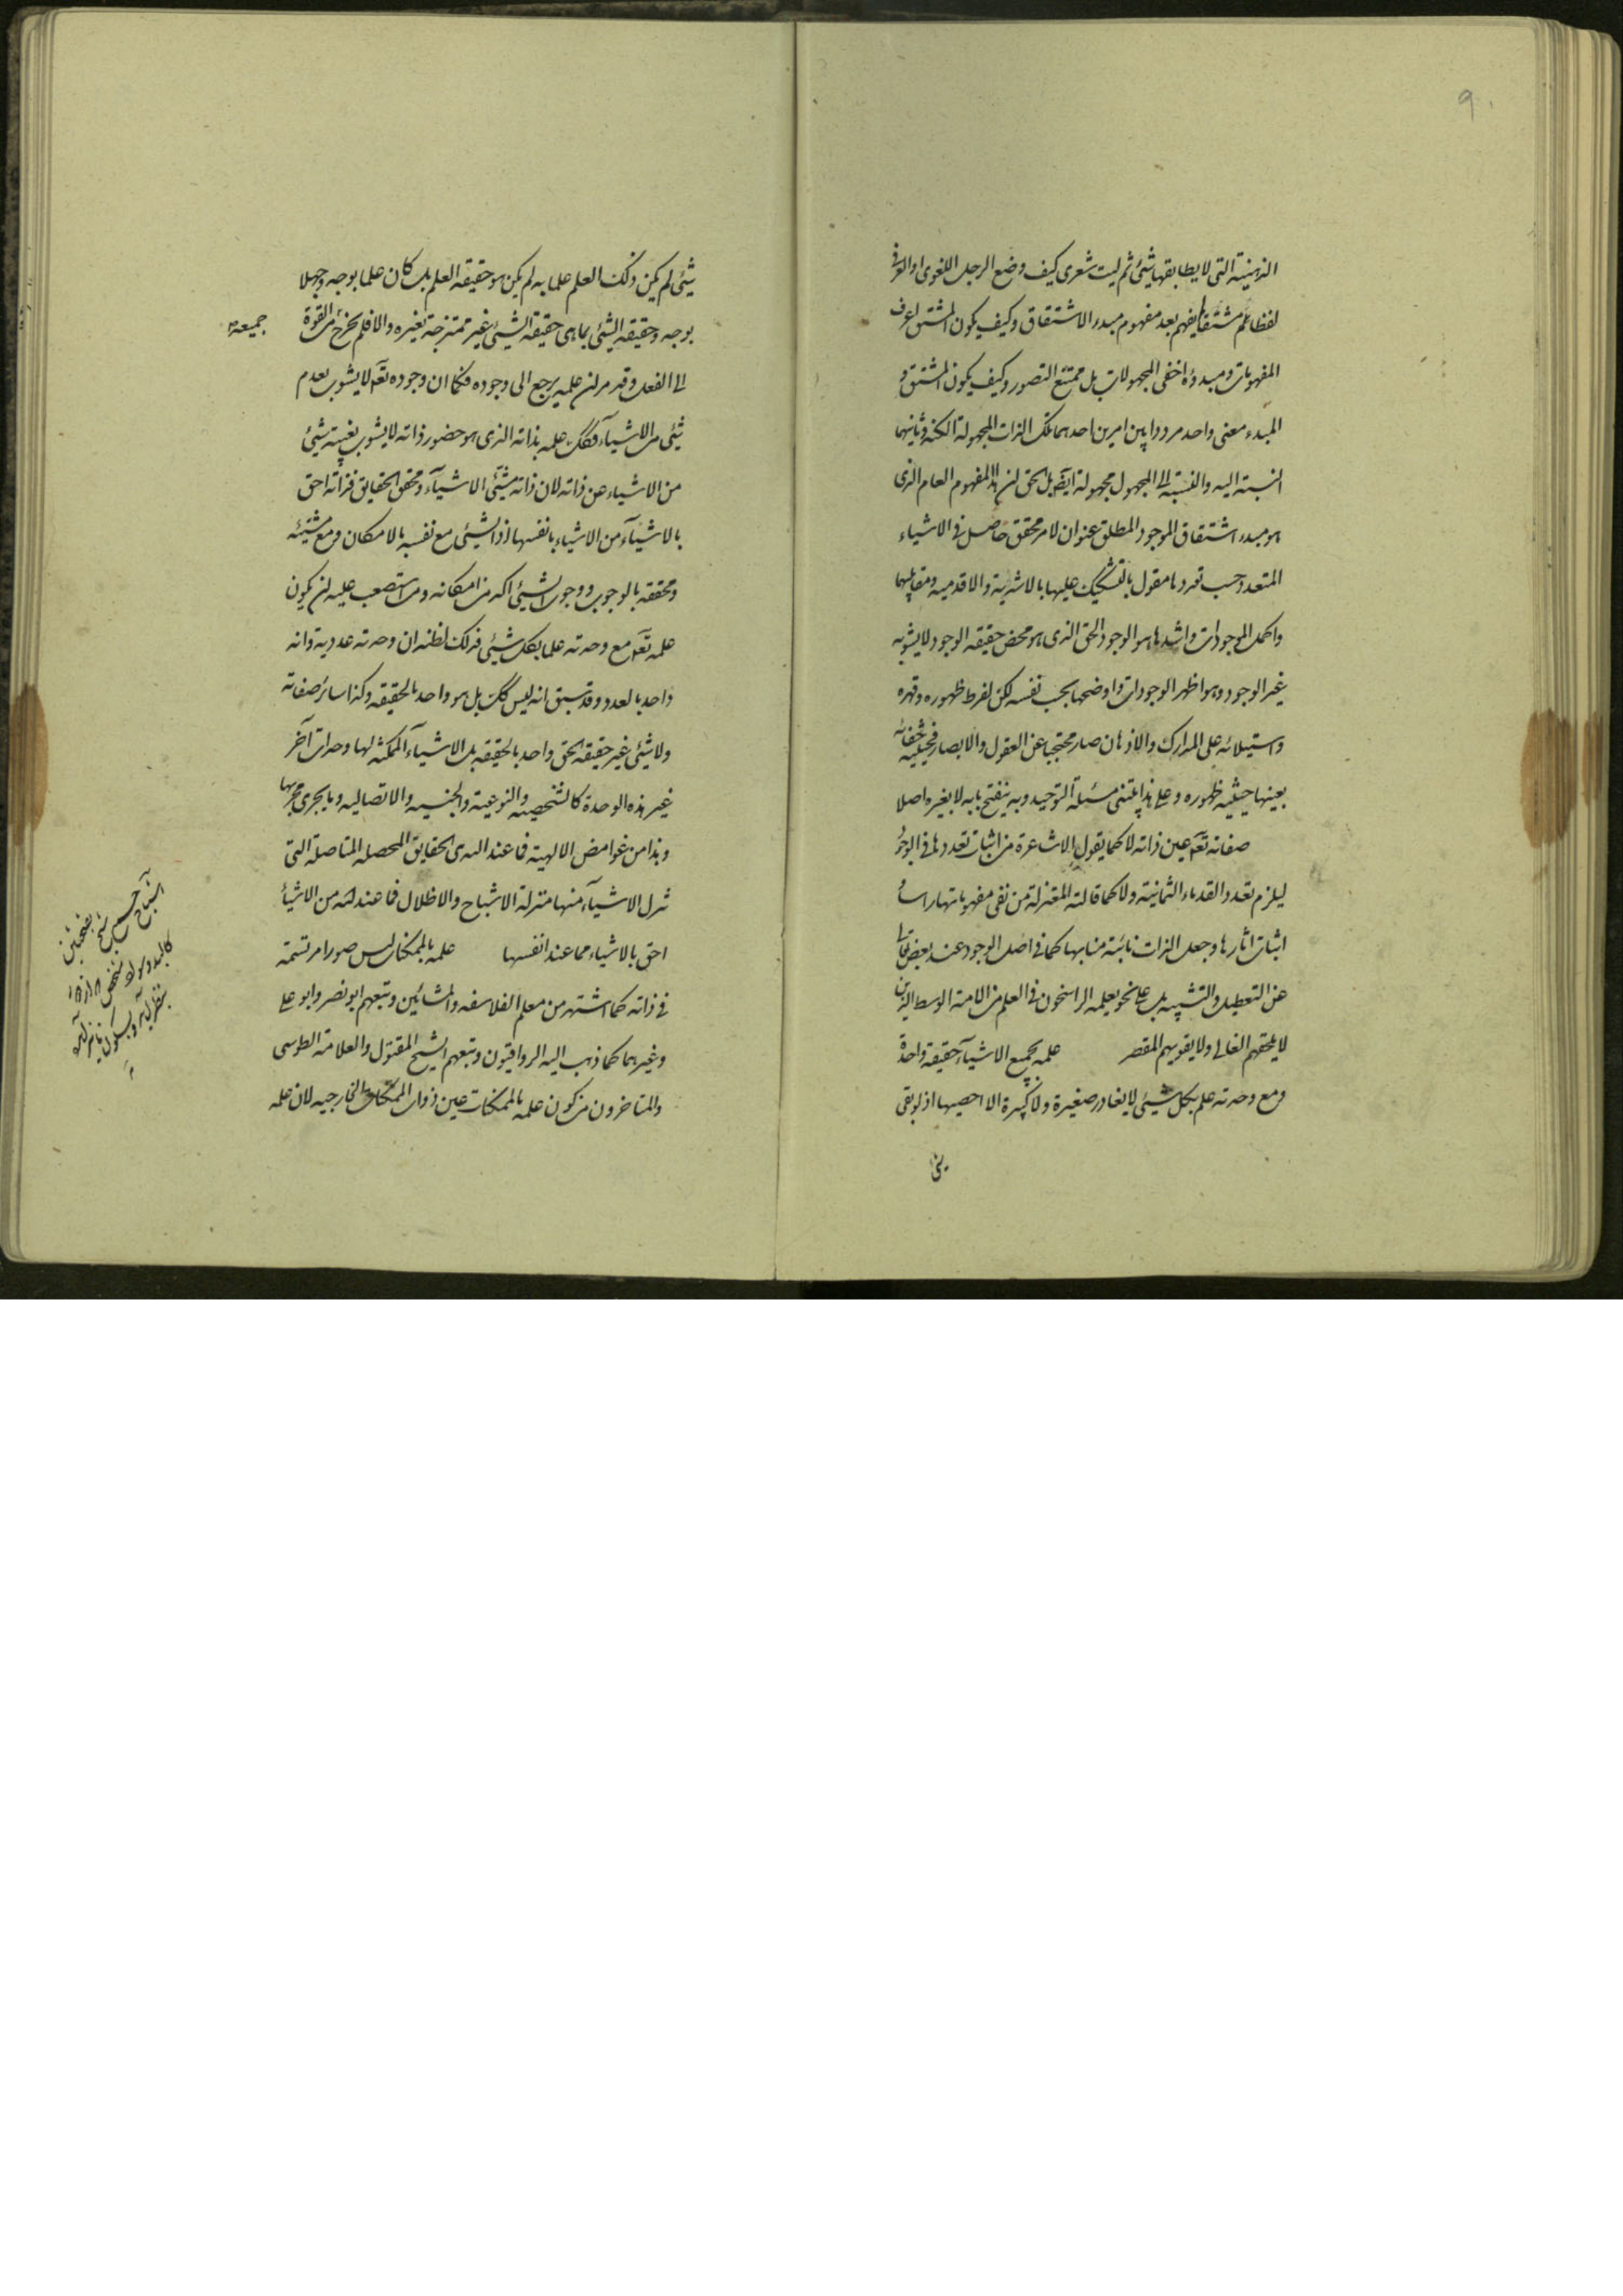 ٩٠
الذهنية التى لا يطابقها شئ ثم ليت شعرى كيف وضع الرجل اللغوى او العرفى
لفظا ثم مشتقا يفهم بعد مفهوم مبدء الاشتقاق وكيف يكون المشتق اعرف
المفهومات ومبدؤه اخفى المجهولات بل ممتنع التصور وكيف يكون المشتق و
المبدء معنى واحد مرددا بين امرين احدهما تلك الذات المجهولة الكنه وثانيهما
انتسبته اليه والنسبة الى المجهول مجهولة ايضا بل الحق ان هذا المفهوم العام الذى
هو مبدء اشتقاق الموجود المطلق عنوان لامر محقق حاصل فى الاشياء
المتعدد حسب تعددها مقول بالتشكيك عليها بالاشدية والاقدمية ومقابليهما
واكمل الموجودات واشدها هو الوجود الحق الذى هو محض حقيقة الوجود لا يشوبه
غير الوجود وهو اظهر الوجودات واوضحها بحسب نفسه لكن لفرط ظهوره وقهره
واستيلائه على المدارك والاذهان صار محتجبا عن العقول والابصار فحيثية خفائه
بعينها حيثية ظهوره وعلى هذا يبتنى مسئلة التوحيد وبه ينفتح بابه لا بغيره اصلا
صفاته تعالى عين ذاته لا كما يقول الاشاعرة من اثبات تعددها فى الوجود
ليلزم تعدد القدماء الثمانية ولا كما قالته المعتزلة من نفى مفهوماتها راسا
اثبات اثارها وجعل الذات نائبة منابها كما فى اصل الوجود عند بعض
عن التعطيل والتشبيه بل على نحو يعلمه الراسخون فى العلم من الامة الوسط الذين
لا يلحقهم الغالى ولا يفوتهم المقصر علمه بجميع الاشياء حقيقة واحدة
ومع وحدته علم بكل شيئى لا يغادر صغيرة ولا كبيرة الا احصيها اذ لو بقى
شئ
شيئى لم يكن ذلك العلم علما به لم يكن هو حقيقه العلم بل كان علما بوجه وجهلا
بوجه وحقيقه الشيئى بما هى حقيقة الشيئى غير ممتزجة بغيره والا فلم يخرج من القوة
جميعه
الى الفعل وقد مر ان علمه يرجع الى وجوده فكما ان وجوده تعالى لا يشوب بعدم
شيئى من الاشيآء فكذلك علمه بذاته الذى هو حضور ذاته لا يشوب بغيبته شيئ
من الاشياء عن ذاته لان ذاته مشيئ الاشيآء ومحقق الحقايق فذاته احق
بالاشيآء من الاشياء بانفسها اذ الشيئى مع نفسه بالامكان ومع مشيئه
ومحققه بالوجوب ووجوب الشيئى اكد من امكانه ومن استصعب عليه ان يكون
علمه تعالى مع وحدته علما بكل شيئى فذلك لظنه ان وحدته عددية وانه
واحد بالعدد وقد سبق انه ليس كذلك بل هو واحد بالحقيقه وكذا سائر صفاته
ولا شيئى غير حقيقة الحق واحد بالحقيقه بل الاشيآء الممكنه لها وحدات آخر
غير هذه الوحدة كالشخصيه والنوعية والجنسيه والاتصاليه وما يجرى مجريها
وهذا من غوامض الالهية فما عند الله هى الحقايق المحصله المتاصلة التى
تنزل الاشيآء منها منزلة الاشباح والاظلال فما عند الله من الاشيآ
احق بالاشياء مما عند انفسها علمه بالممكنات ليس صورا مرتسمة
فى ذاته كما اشتهر من معلم الفلاسفه والمشائين وتبعهم ابو نصر وابو على
وغيرهما كما ذهب اليه الرواقيون وتبعهم الشيخ المقتول والعلامة الطوسى
والمتاخرون من كون علمه بالممكنات عين ذوات الممكنات الخارجيه لان علمه
اشباح جمع شبح بفتحتين
كالبد وسواد شخص